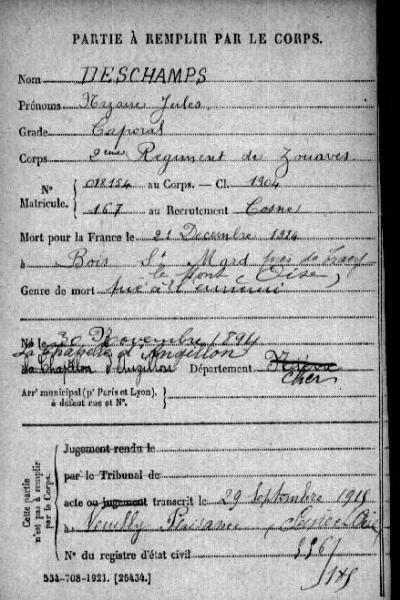 PARTIE À REMPLIR PAR LE CORPS.
Nom DESCHAMPS
Prénoms Nazaire Jules
Grade Caporal
Corps 2ème Régiment de Zouaves
N° Matricule. 018154 au Corps. — Cl. 1904
167 au Recrutement Cosne
Mort pour la France le 21 Décembre 1914
à Bois St Mard près de Tracy
le Mont, Oise,
Genre de mort tué à l'ennemi
Né le 30 Novembre 1894
La Chapelle d'Angillon
à La Chapelle d'Angillon Département Nièvre
Cher
Arrt municipal (pr Paris et Lyon), à défaut rue et N°.
Cette partie n'est pas à remplir par le Corps.
Jugement rendu le
par le Tribunal de
acte ou jugement transcrit le 29 Septembre 1915
à Neuilly Plaisance,
N° du registre d'état civil
534-708-1921. [26434.]